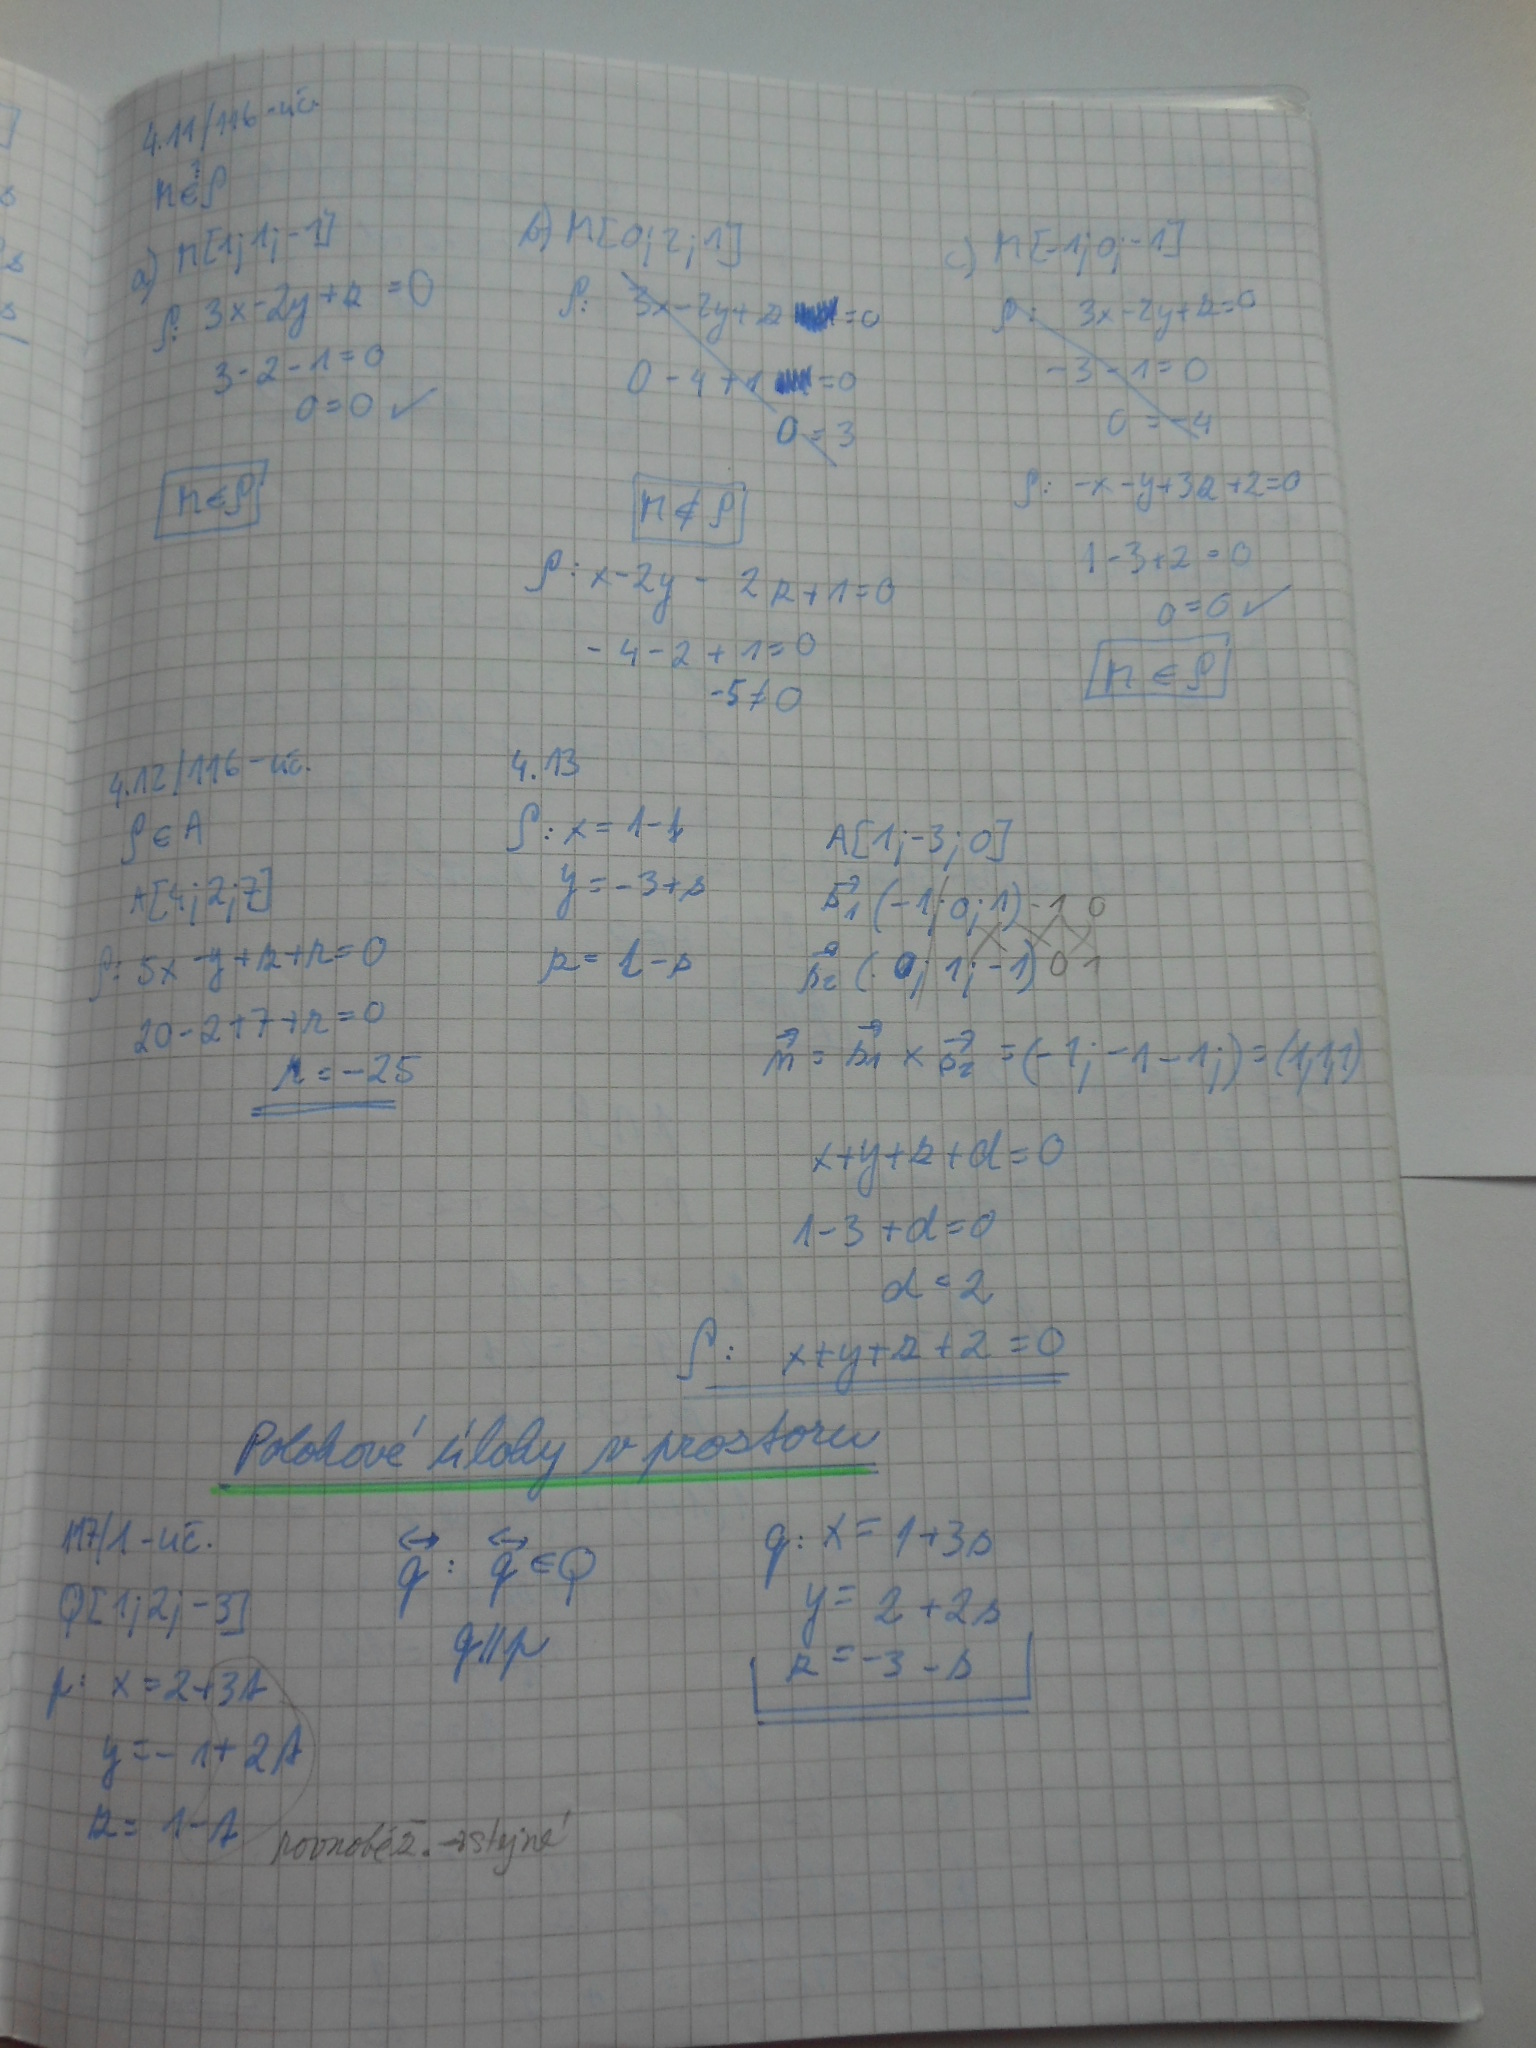 4.11/116-uč.
M ∈? ρ
a) M[1; 1; -1]
ρ: 3x-2y+z = 0
3-2-1=0
0=0 ✓
M∈ρ
b) M[0; 2; 1]
ρ: 3x-2y+z =0
0-4+1 =0
0=3
M∉ρ
ρ: x-2y- 2z+1=0
-4-2+1=0
-5≠0
c) M[-1; 0; -1]
ρ: 3x-2y+z=0
-3-1=0
0=-4
ρ: -x-y+3z+2=0
1-3+2=0
0=0 ✓
M∈ρ
4.12/116-uč.
ρ∈A
A[4; 2; 7]
ρ: 5x-y+z+r=0
20-2+7+r=0
r=-25
4.13
ρ: x=1-t
y=-3+s
z=t-s
A[1; -3; 0]
s₁ (-1; 0; 1) -1 0
s₂ (0; 1; -1) 0 1
n = s₁ × s₂ = (-1; -1 -1;) = (1,1,1)
x+y+z+d=0
1-3+d=0
d=2
ρ: x+y+z+2=0
Polohové úlohy v prostoru
117/1-uč.
Q[1; 2; -3]
p: x=2+3t
y=-1+2t
z=1-t
rovnoběž. → stejné
↔q: ↔q∈Q
q∥p
q: x=1+3s
y=2+2s
z=-3-s